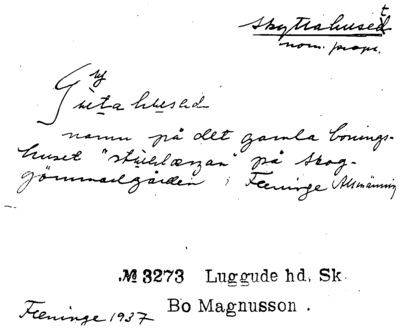 Skyttahuset
nom. propr.
namn på det gamla bonings-
huset "stubbarpan" på Skog-
gömmaregården i Fleninge Allmänning
№ 3273 Luggude hd, Sk.
Bo Magnusson.
Fleninge 1937